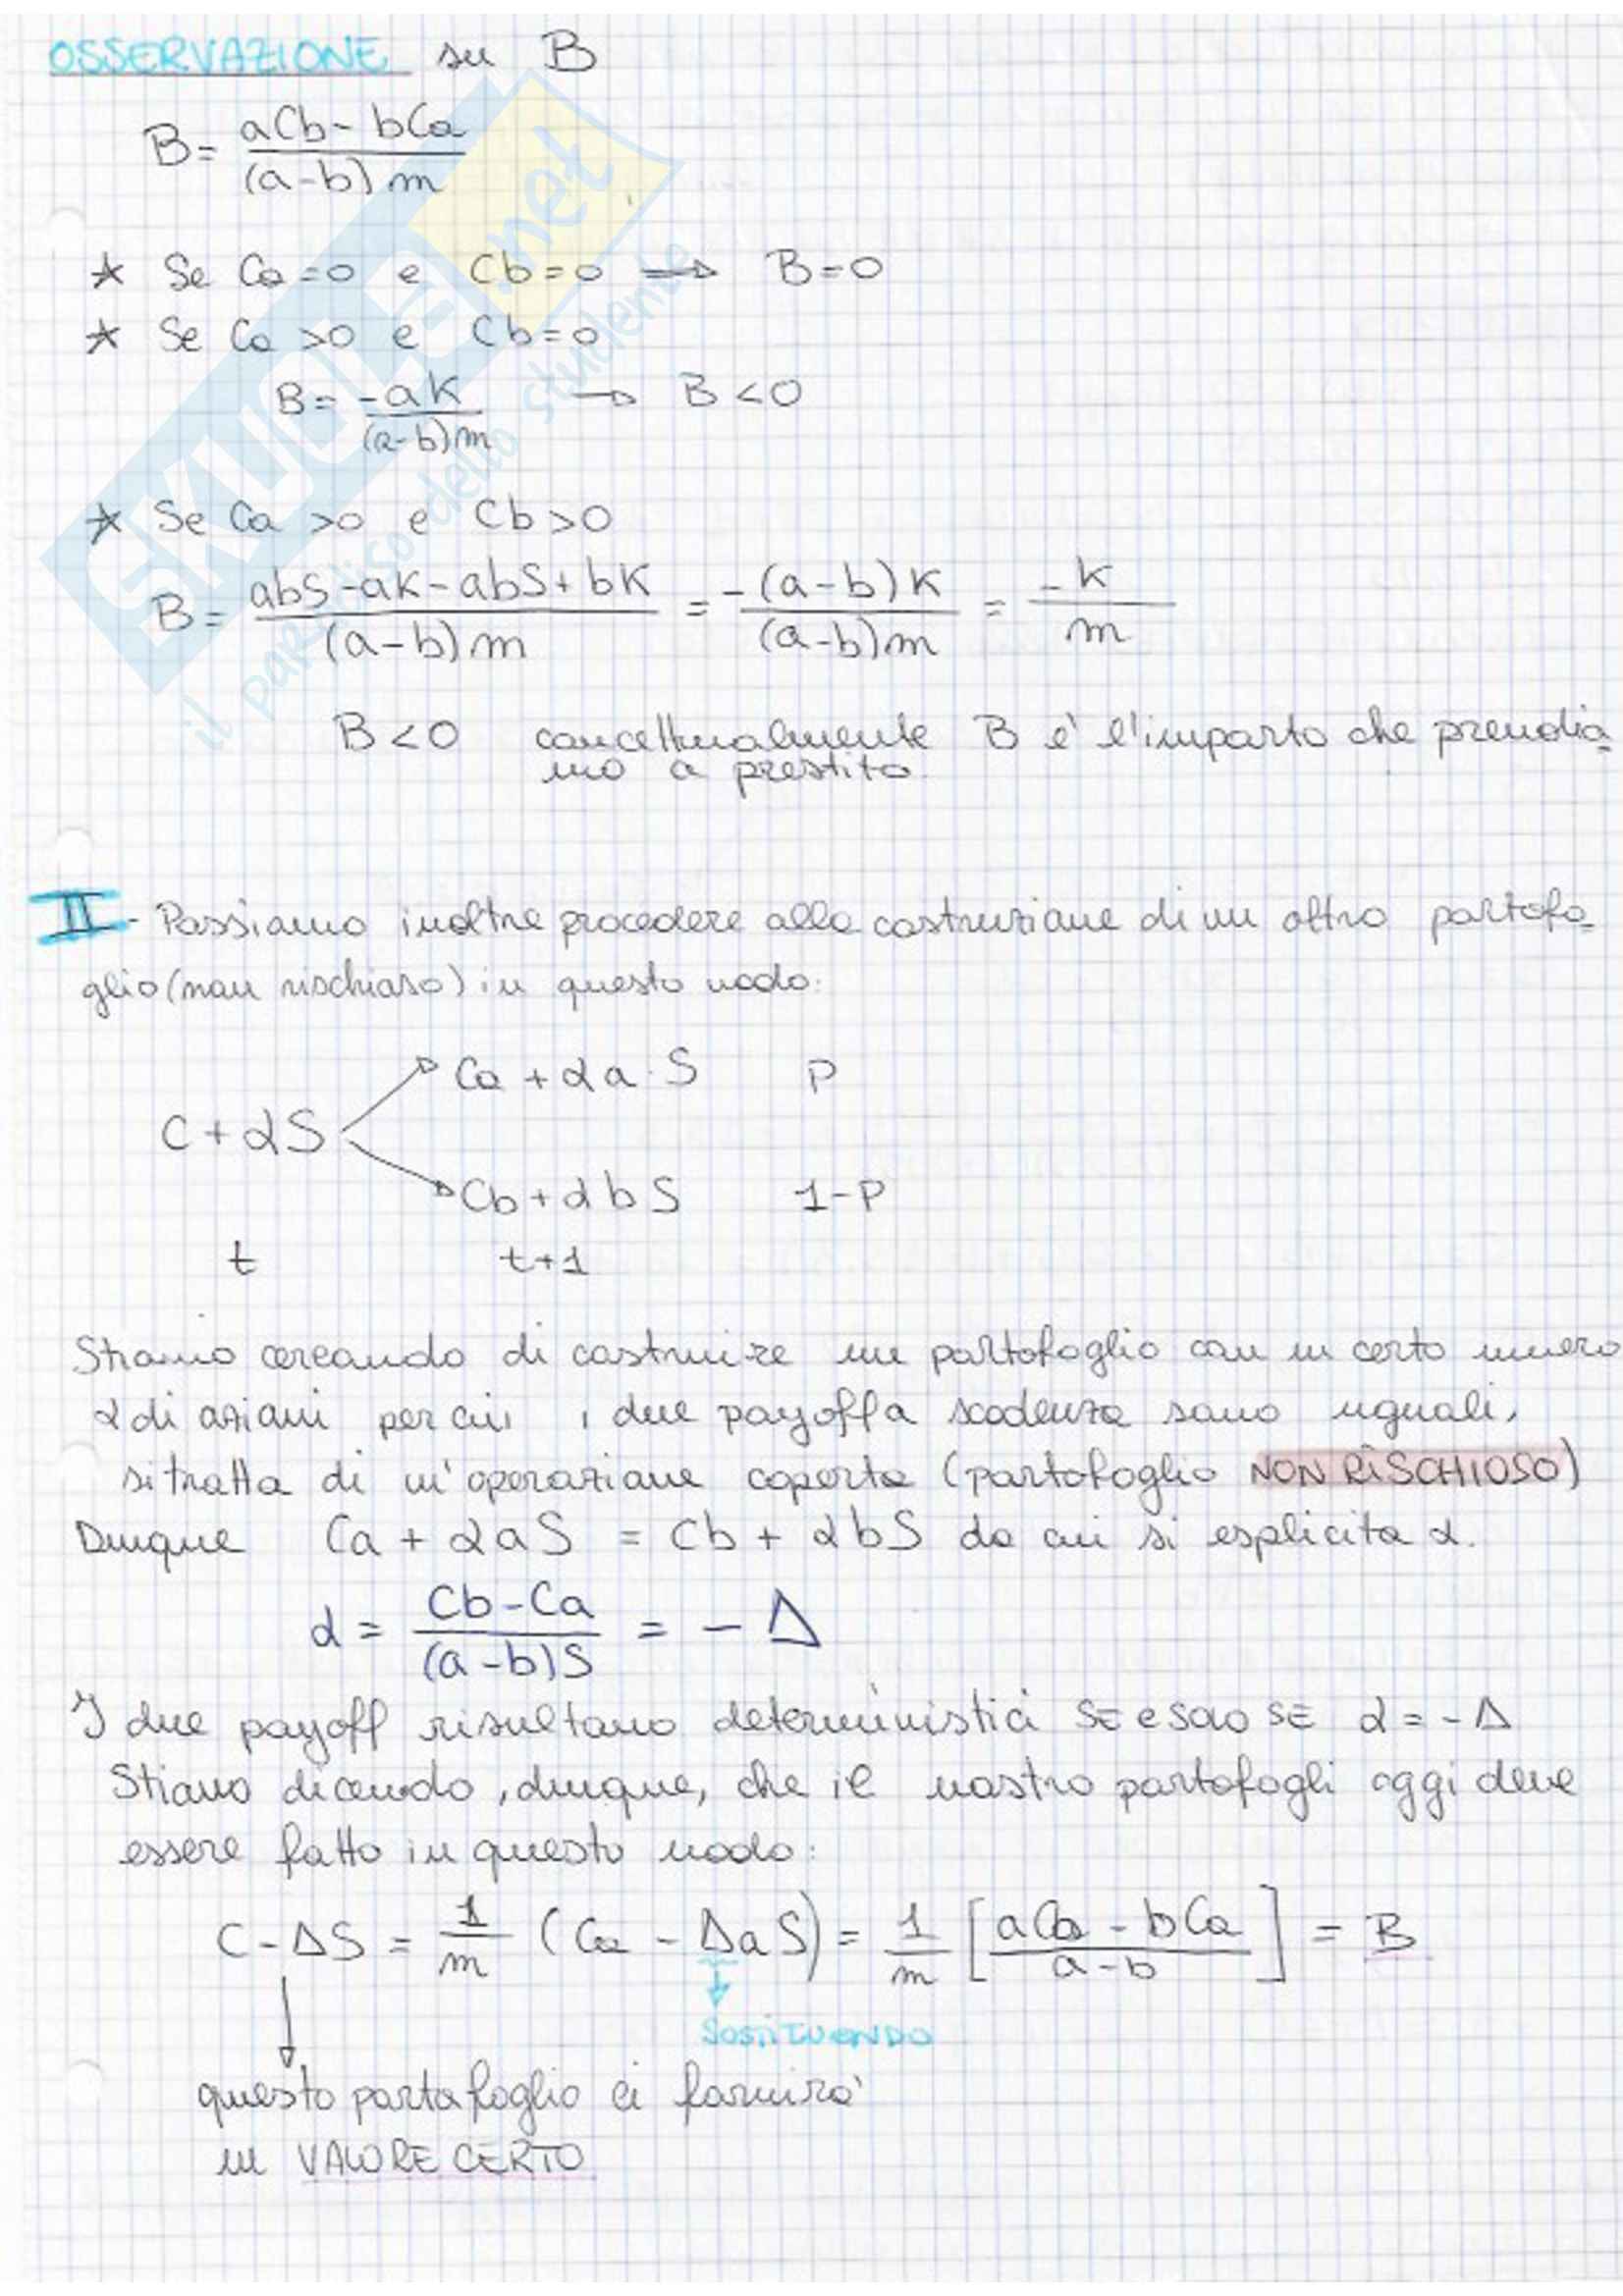 OSSERVAZIONE su B
B = aCb - bCa / (a-b) m
* Se Ca = 0 e Cb = 0 → B = 0
* Se Ca > 0 e Cb = 0
B = -ak / (a-b)m → B < 0
* Se Ca > 0 e Cb > 0
B = abS - ak - abS + bK / (a-b)m = -(a-b)K / (a-b)m = -K / m
B < 0 concettualmente B è l'importo che prendia
mo a prestito.
II - Possiamo inoltre procedere alla costruzione di un altro portafo_
glio (non rischioso) in questo modo:
Ca + αa·S P
C + αS
Cb + αbS 1-P
t t+1
Stiamo cercando di costruire un portafoglio con un certo numero
α di azioni per cui i due payoff a scadenza sono uguali,
si tratta di un'operazione coperta (portafoglio NON RISCHIOSO)
Dunque Ca + αaS = Cb + αbS da cui si esplicita α.
α = Cb - Ca / (a-b)S = - Δ
I due payoff risultano deterministici SE e solo SE α = -Δ
Stiamo dicendo, dunque, che il nostro portafogli oggi deve
essere fatto in questo modo:
C - ΔS = 1/m (Ca - ΔaS) = 1/m [ - bCa / a-b ] = B
SOSTITUENDO
questo portafoglio ci fornirà
un VALORE CERTO
SKUOLA.net
il paradiso dello studente